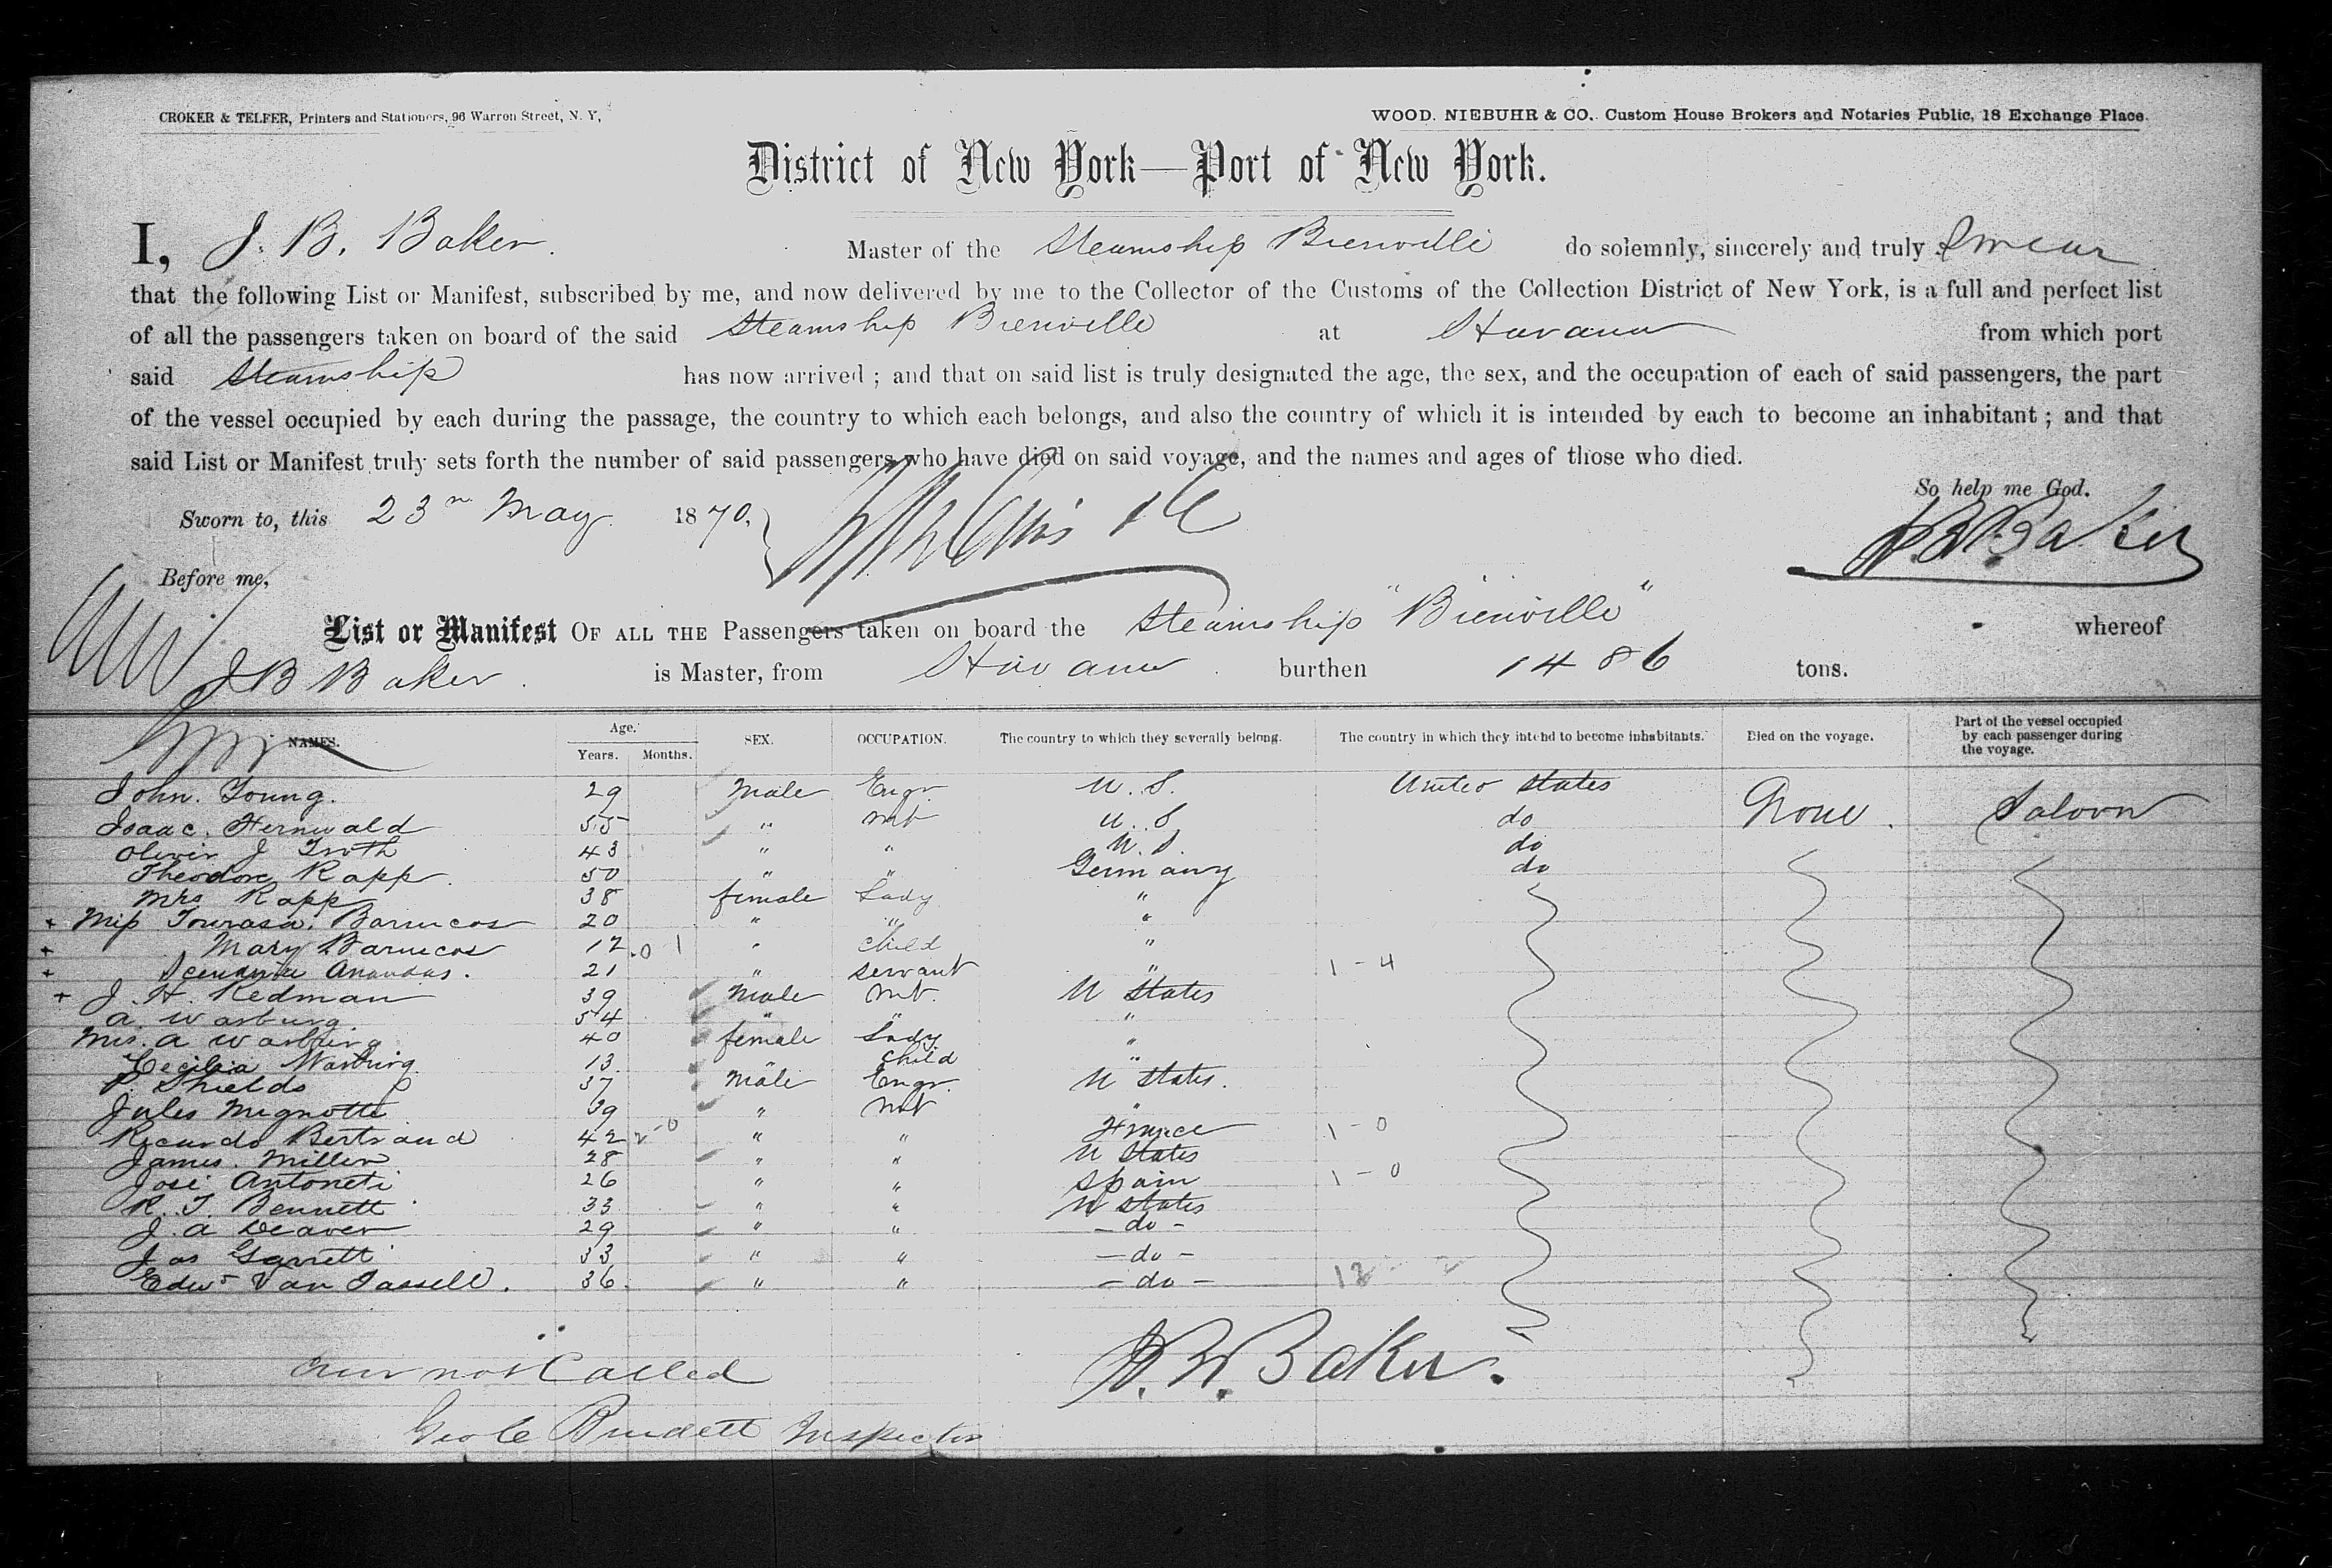 CROKER & TELFER, Printers and Stationers, 96 Warren Street, N. Y, WOOD. NIEBUHR & CO. Custom House Brokers and Notaries Public, 18 Exchange Place.
District of New York—Port of New York.
I, J. B. Baker. Master of the Steamship Bienville do solemnly, sincerely and truly Swear
that the following List or Manifest, subscribed by me, and now delivered by me to the Collector of the Customs of the Collection District of New York, is a full and perfect list
of all the passengers taken on board of the said Steamship Bienville at Havana from which port
said Steamship has now arrived ; and that on said list is truly designated the age, the sex, and the occupation of each of said passengers, the part
of the vessel occupied by each during the passage, the country to which each belongs, and also the country of which it is intended by each to become an inhabitant ; and that
said List or Manifest truly sets forth the number of said passengers who have died on said voyage, and the names and ages of those who died.
So help me God.
Sworn to, this 23 May 1870, J. B. Baker
Before me,
List or Manifest OF ALL THE Passengers taken on board the Steamship "Bienville" whereof
J B Baker. is Master, from Havana burthen 1486 tons.
NAMES. Age. Years. Months. SEX. OCCUPATION. The country to which they severally belong. The country in which they intend to become inhabitants. Died on the voyage. Part of the vessel occupied by each passenger during the voyage.
John. Young. 29 Male Engr. U. S. United States None. Saloon
Isaac. Hernwald 55 " Mt U. S do
Oliver J Troth 43 " " U. S. do
Theodore Rapp. 50 " " Germany do
Mrs Rapp 38 female Lady "
+ Miss Barnecos 20 " " "
+ Mary Barnecos 12 " child "
+ 21 " servant " 1 - 4
+ J. H. Redman 39 Male Mt. U States
A. Warburg 54 " " "
Mrs. A Warburg 40 female Lady "
Cecilia Warburg 13. child "
P. Shields 37 Male Engr. U States.
Jules Mignotte 39 " Mt "
Ricardo Bertrand 42 " " France 1 - 0
James. Miller 28 " " U States
José Antoneti 26 " " Spain 1 - 0
R. T. Bennett 33 " " U States
J. A Deaver 29 " " - do -
Jas Garrett 33 " " - do -
Edwd Van Tassell. 36. " " - do -
J. B. Baker.
not Called
Geo C Burdett Inspector